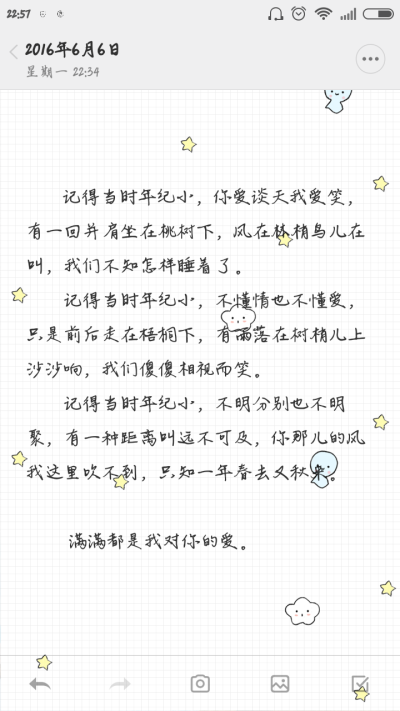 22:57
2016年6月6日
星期一 22:34
记得当时年纪小，你爱谈天我爱笑，
有一回并肩坐在桃树下，风在林梢鸟儿在
叫，我们不知怎样睡着了。
记得当时年纪小，不懂情也不懂爱，
只是前后走在梧桐下，有雨落在树梢儿上
沙沙响，我们傻傻相视而笑。
记得当时年纪小，不明分别也不明
聚，有一种距离叫远不可及，你那儿的风
我这里吹不到，只知一年春去又秋来。
满满都是我对你的爱。